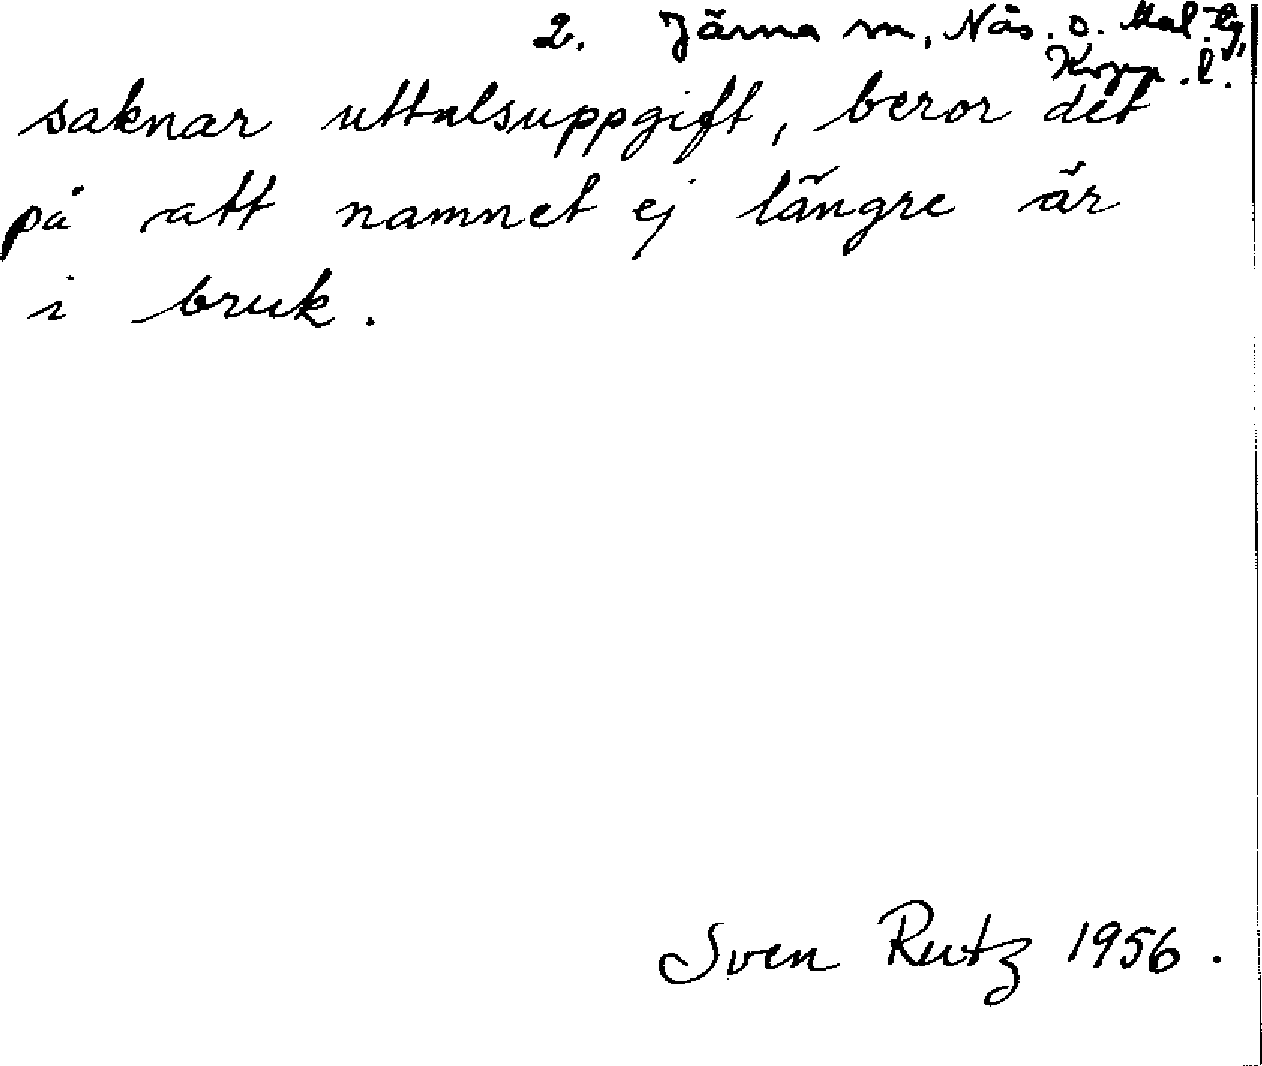 2. Järna sn, Nås o. Mal. tg,
Kopp. l.
saknar uttalsuppgift, beror det
på att namnet ej längre är
i bruk.
Sven Rutz 1956.